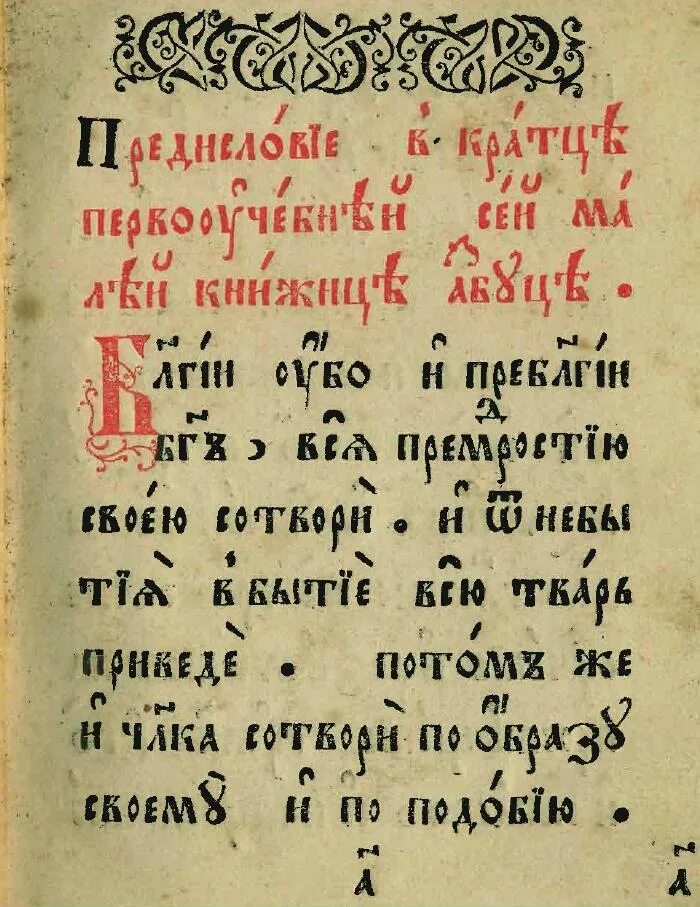 Предисло́вїе в̾ кра́тцѣ
первоꙋ҆че́бнѣй се́й ма́
лѣй кни́жицѣ а҆́бꙋцѣ .
Бл҃гі́й ᲂу҆́бо и҆ пребл҃гі́й
бг҃ъ , всѧ̑ премⷣростїю
свое́ю сотворѝ . и҆ ѿ небы
тїѧ̀ в̾ бытїѐ всю̑ тва́рь
приведѐ . пото́мъ же
и҆ чл҃ка сотворѝ по ѻ҆́бразꙋ
своемꙋ̀ и҆ по подо́бїю .
а҃ а҃